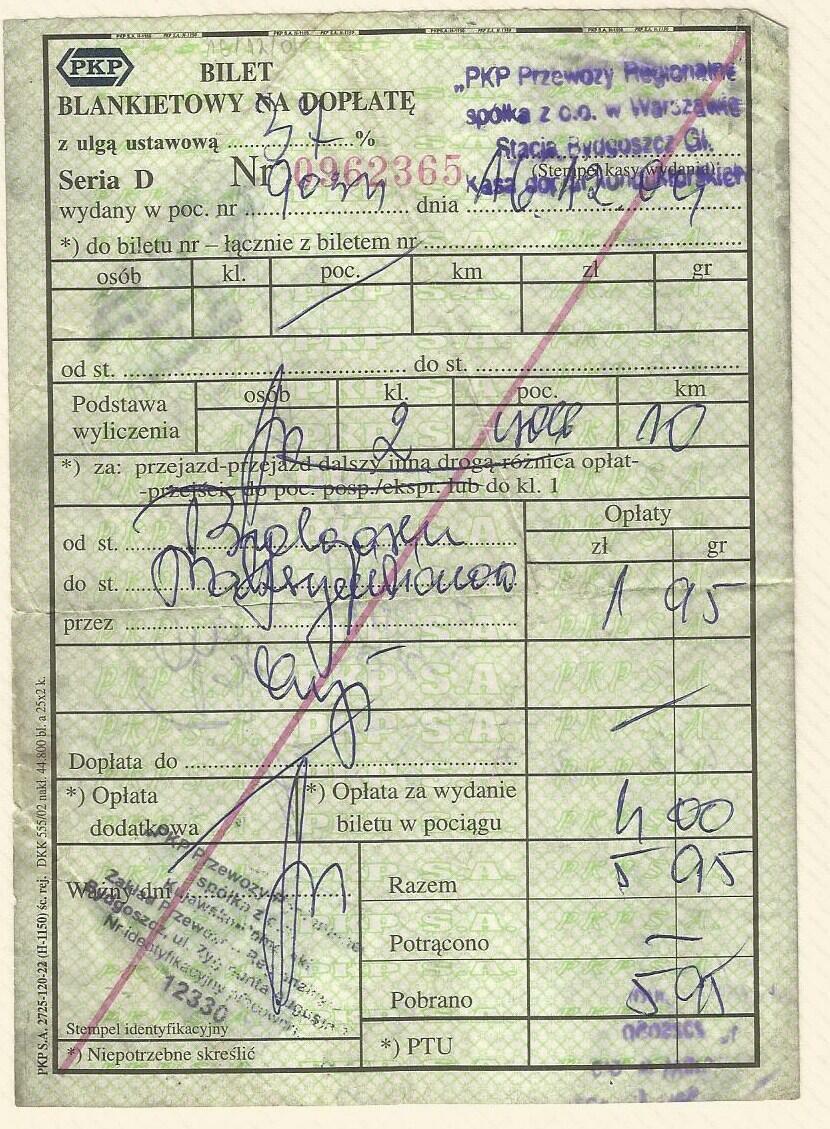 PKP
BILET
BLANKIETOWY NA DOPŁATĘ
z ulgą ustawową ........ 37 ........%
Seria D Nr 0962365
„PKP Przewozy Regionalne
spółka z o.o. w Warszawie
Stacja Bydgoszcz Gł.
(Stempel kasy wydania)
wydany w poc. nr ........ dnia 16.12.04
*) do biletu nr – łącznie z biletem nr ........
osób kl. poc. km zł gr
od st. ........ do st. ........
Podstawa wyliczenia osób kl. poc. km
2 10
*) za: przejazd-przejazd dalszy inną drogą-różnica opłat-
-przejście do poc. posp./ekspr. lub do kl. 1
Opłaty
zł gr
od st.
do st. Maksymilianowo
1 95
przez ........
Dopłata do ........ —
*) Opłata dodatkowa
*) Opłata za wydanie biletu w pociągu 4 00
Ważny dni ........
Razem 5 95
Potrącono —
Pobrano 5 95
*) PTU
PKP Przewozy
spółka z
Zakład Przewozów
Bydgoszcz, ul. Zygmunta Augusta
Nr identyfikacyjny
12330
Stempel identyfikacyjny
*) Niepotrzebne skreślić
PKP S.A. 2725-120-22 (H-1150) śc. rej. DKK 555/02 nakł. 44.800 bl. a 25x2 k.